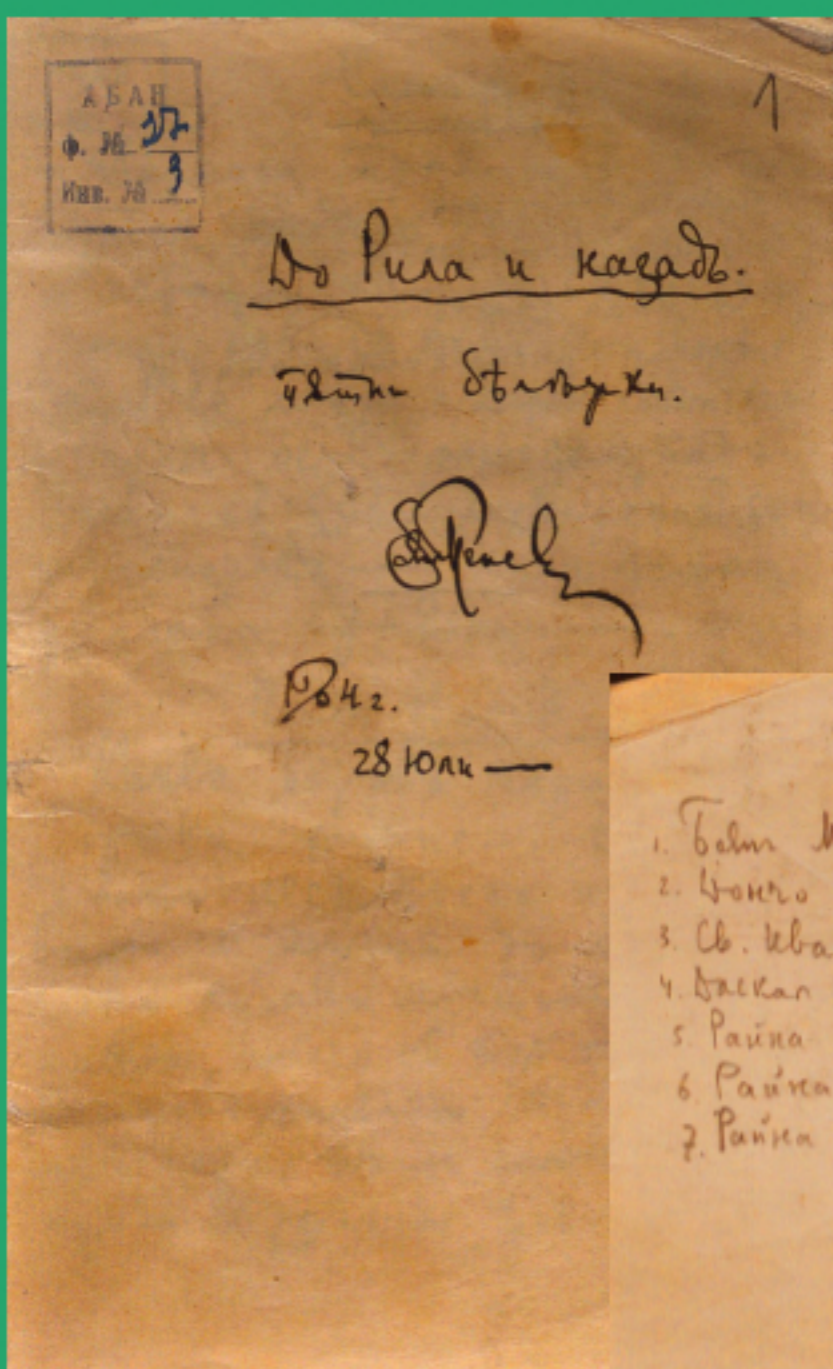 АБАН
ф. № 27
Инв. № 3
1
До Рила и назадъ.
пѫтни бѣлѣжки.
1904 г.
28 Юли —
1.
2. Дончо
3. Св. Ива
4. Даскал
5. Райна
6. Райна
7. Райна